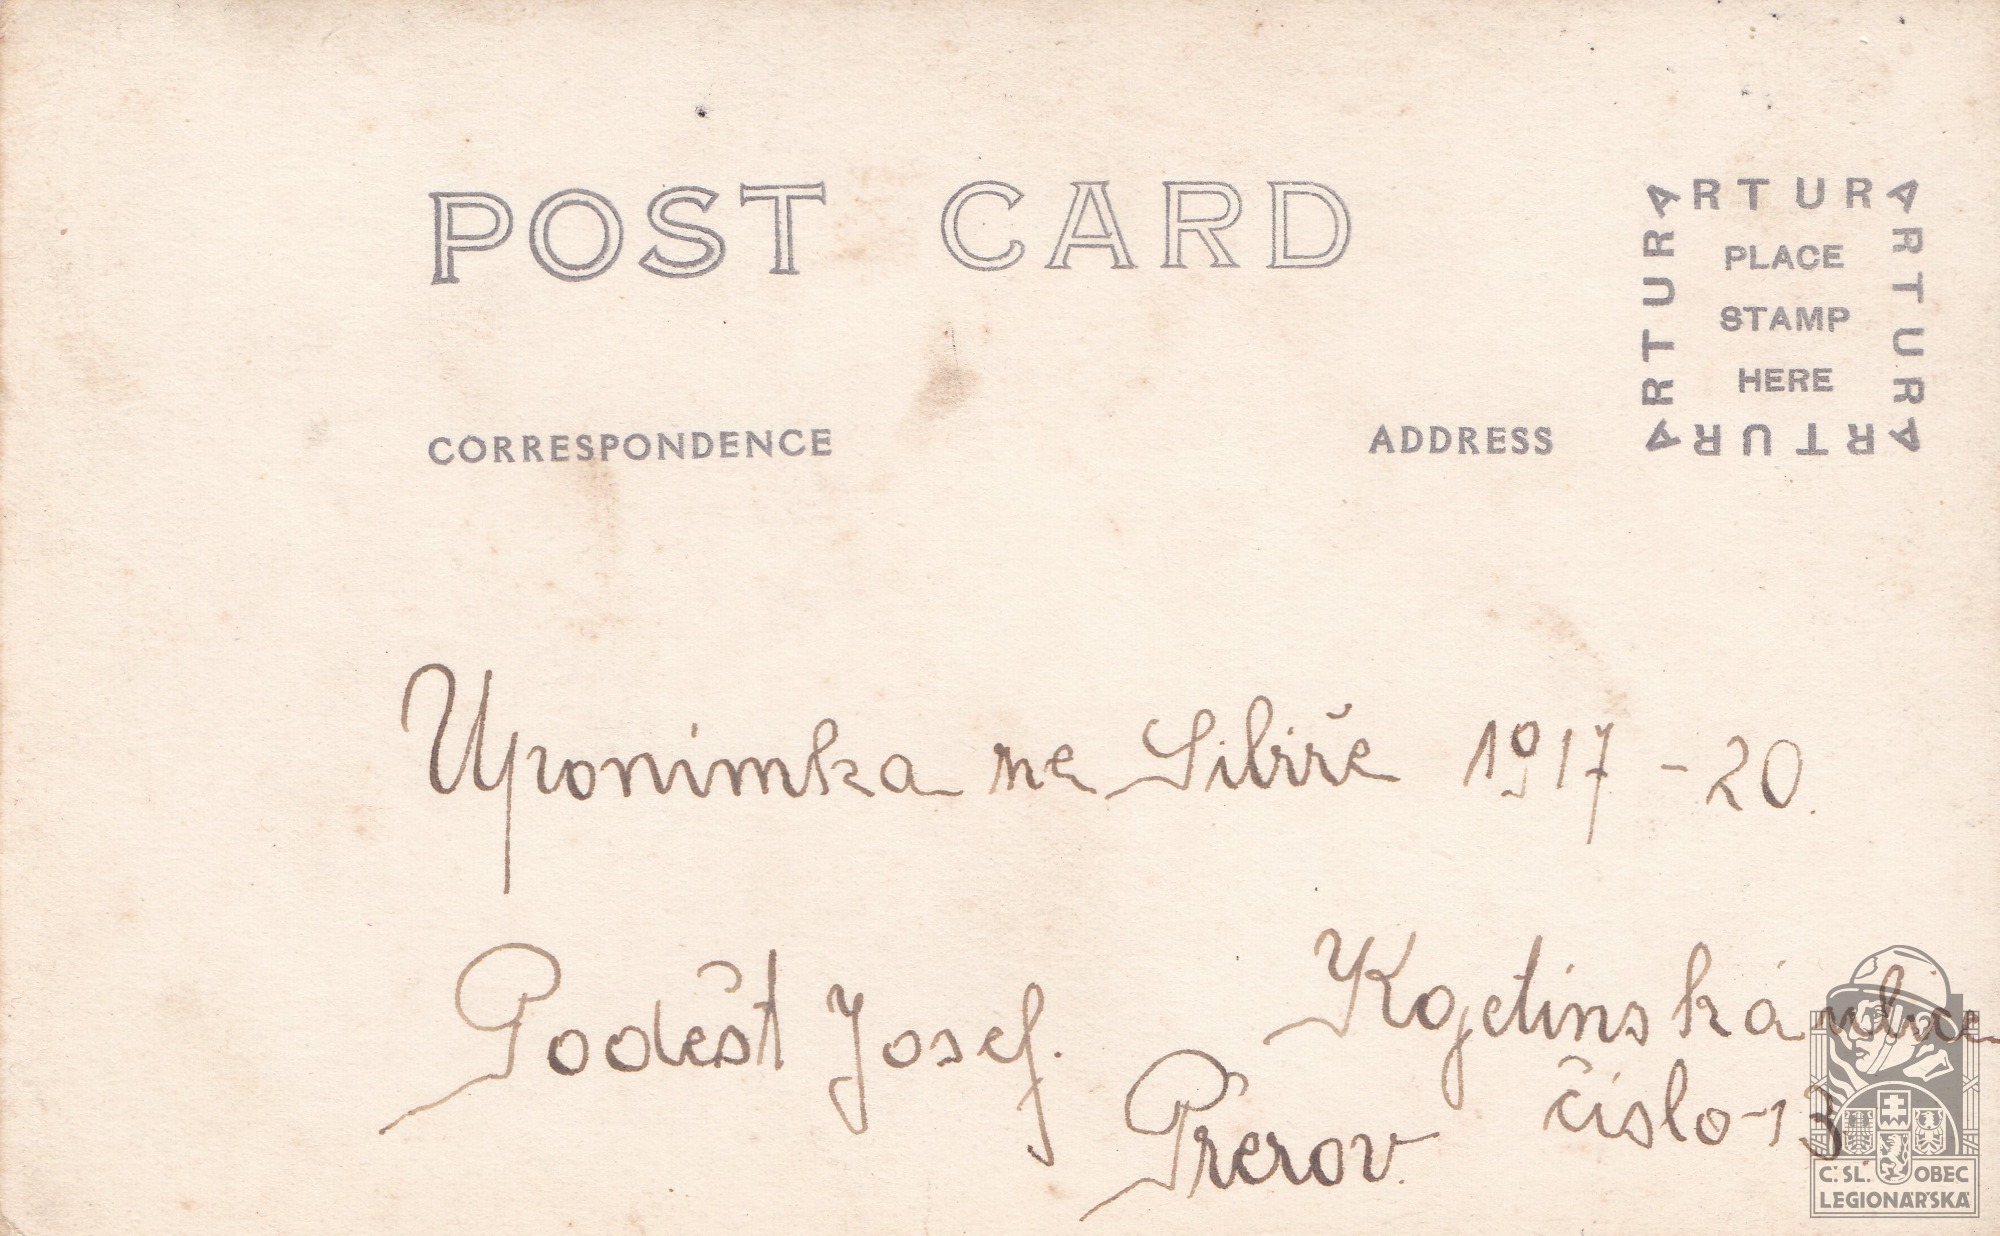 POST CARD
ARTURA
ARTURA
ARTURA
ARTURA
PLACE
STAMP
HERE
CORRESPONDENCE
ADDRESS
Uponímka ne Sibiře 1917 - 20.
Poděšt Josef.
Kojetínská ulice
číslo - 13
Přerov.
Č. SL. OBEC
LEGIONÁŘSKÁ